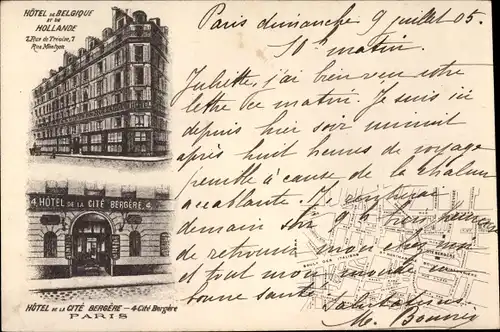 HÔTEL DE BELGIQUE
ET DE
HOLLANDE
7, Rue de Trévise, 7
Rue Montyon
4. HÔTEL DE LA CITÉ BERGÈRE. 4.
HÔTEL DE LA CITÉ BERGÈRE — 4 Cité Bergère
PARIS
Paris dimanche 9 juillet 05.
10h matin.
Juliette, j'ai bien reçu votre
lettre ce matin. Je suis ici
depuis hier soir minuit
après huit heures de voyage
pénible à cause de la chaleur
accablante. Je
demain soir 9h
de retrouver mon chez moi
et tout mon monde en
bonne santé.
Salutations